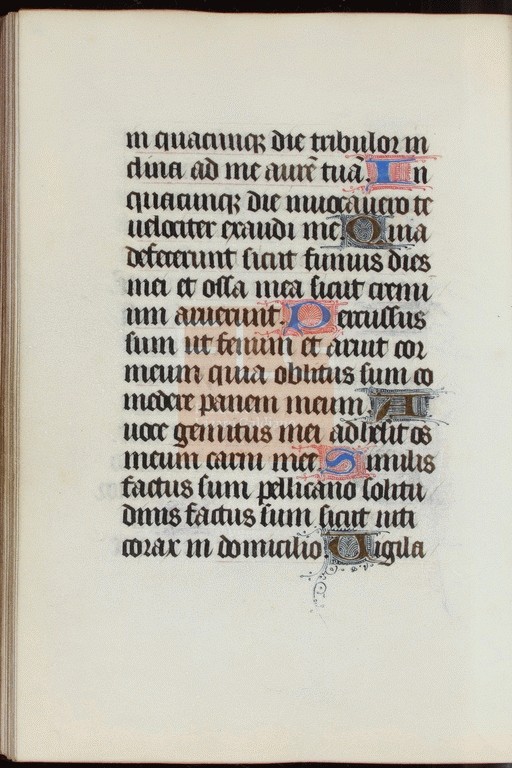 in quacunq; die tribulor in
clina ad me aurē tuā. In
quacunq; die inuocauero te
uelociter exaudi me. Quia
defecerunt sicut fumus dies
mei et ossa mea sicut cremi
um aruerunt. Percussus
sum ut fenum et aruit cor
meum quia oblitus sum co
medere panem meum. A
uoce gemitus mei adhesit os
meum carni mee. Similis
factus sum pellicano solitu
dinis factus sum sicut niti
corax in domicilio. Uigila